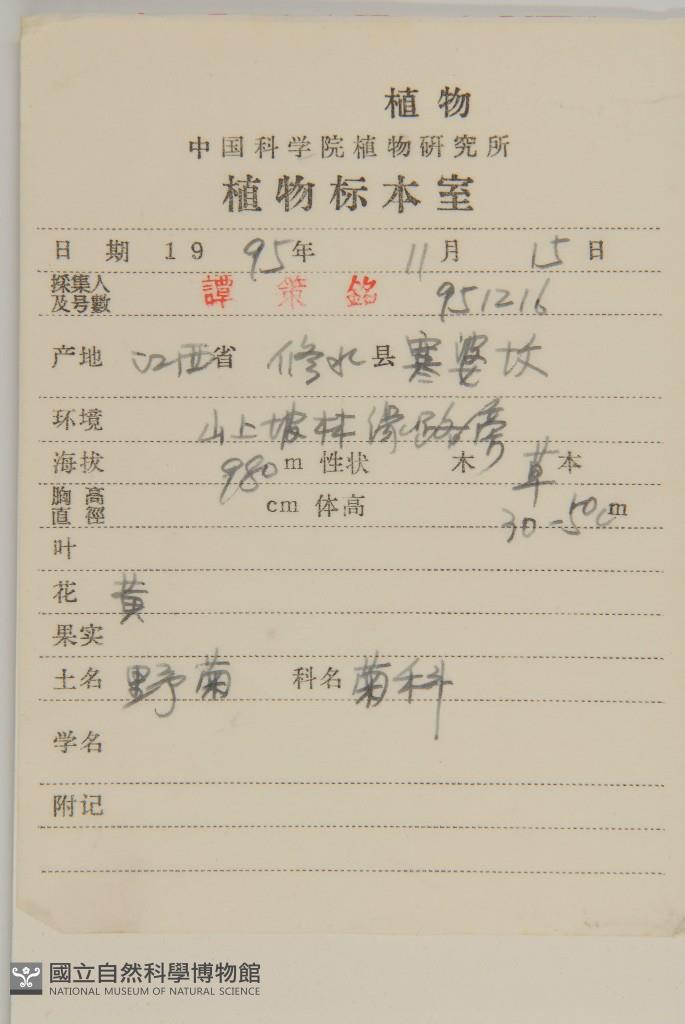 植物
中国科学院植物研究所
植物标本室
日 期 19 95年 11月 15日
採集人及号數 譚 策 銘 951216
产地 江西省 修水县 寒婆坟
环境 山上坡林缘路旁
海拔 980 m 性状 木 草本
胸高直徑 cm 体高 30-50cm
叶
花 黄
果实
土名 野菊 科名 菊科
学名
附记
國立自然科學博物館
NATIONAL MUSEUM OF NATURAL SCIENCE